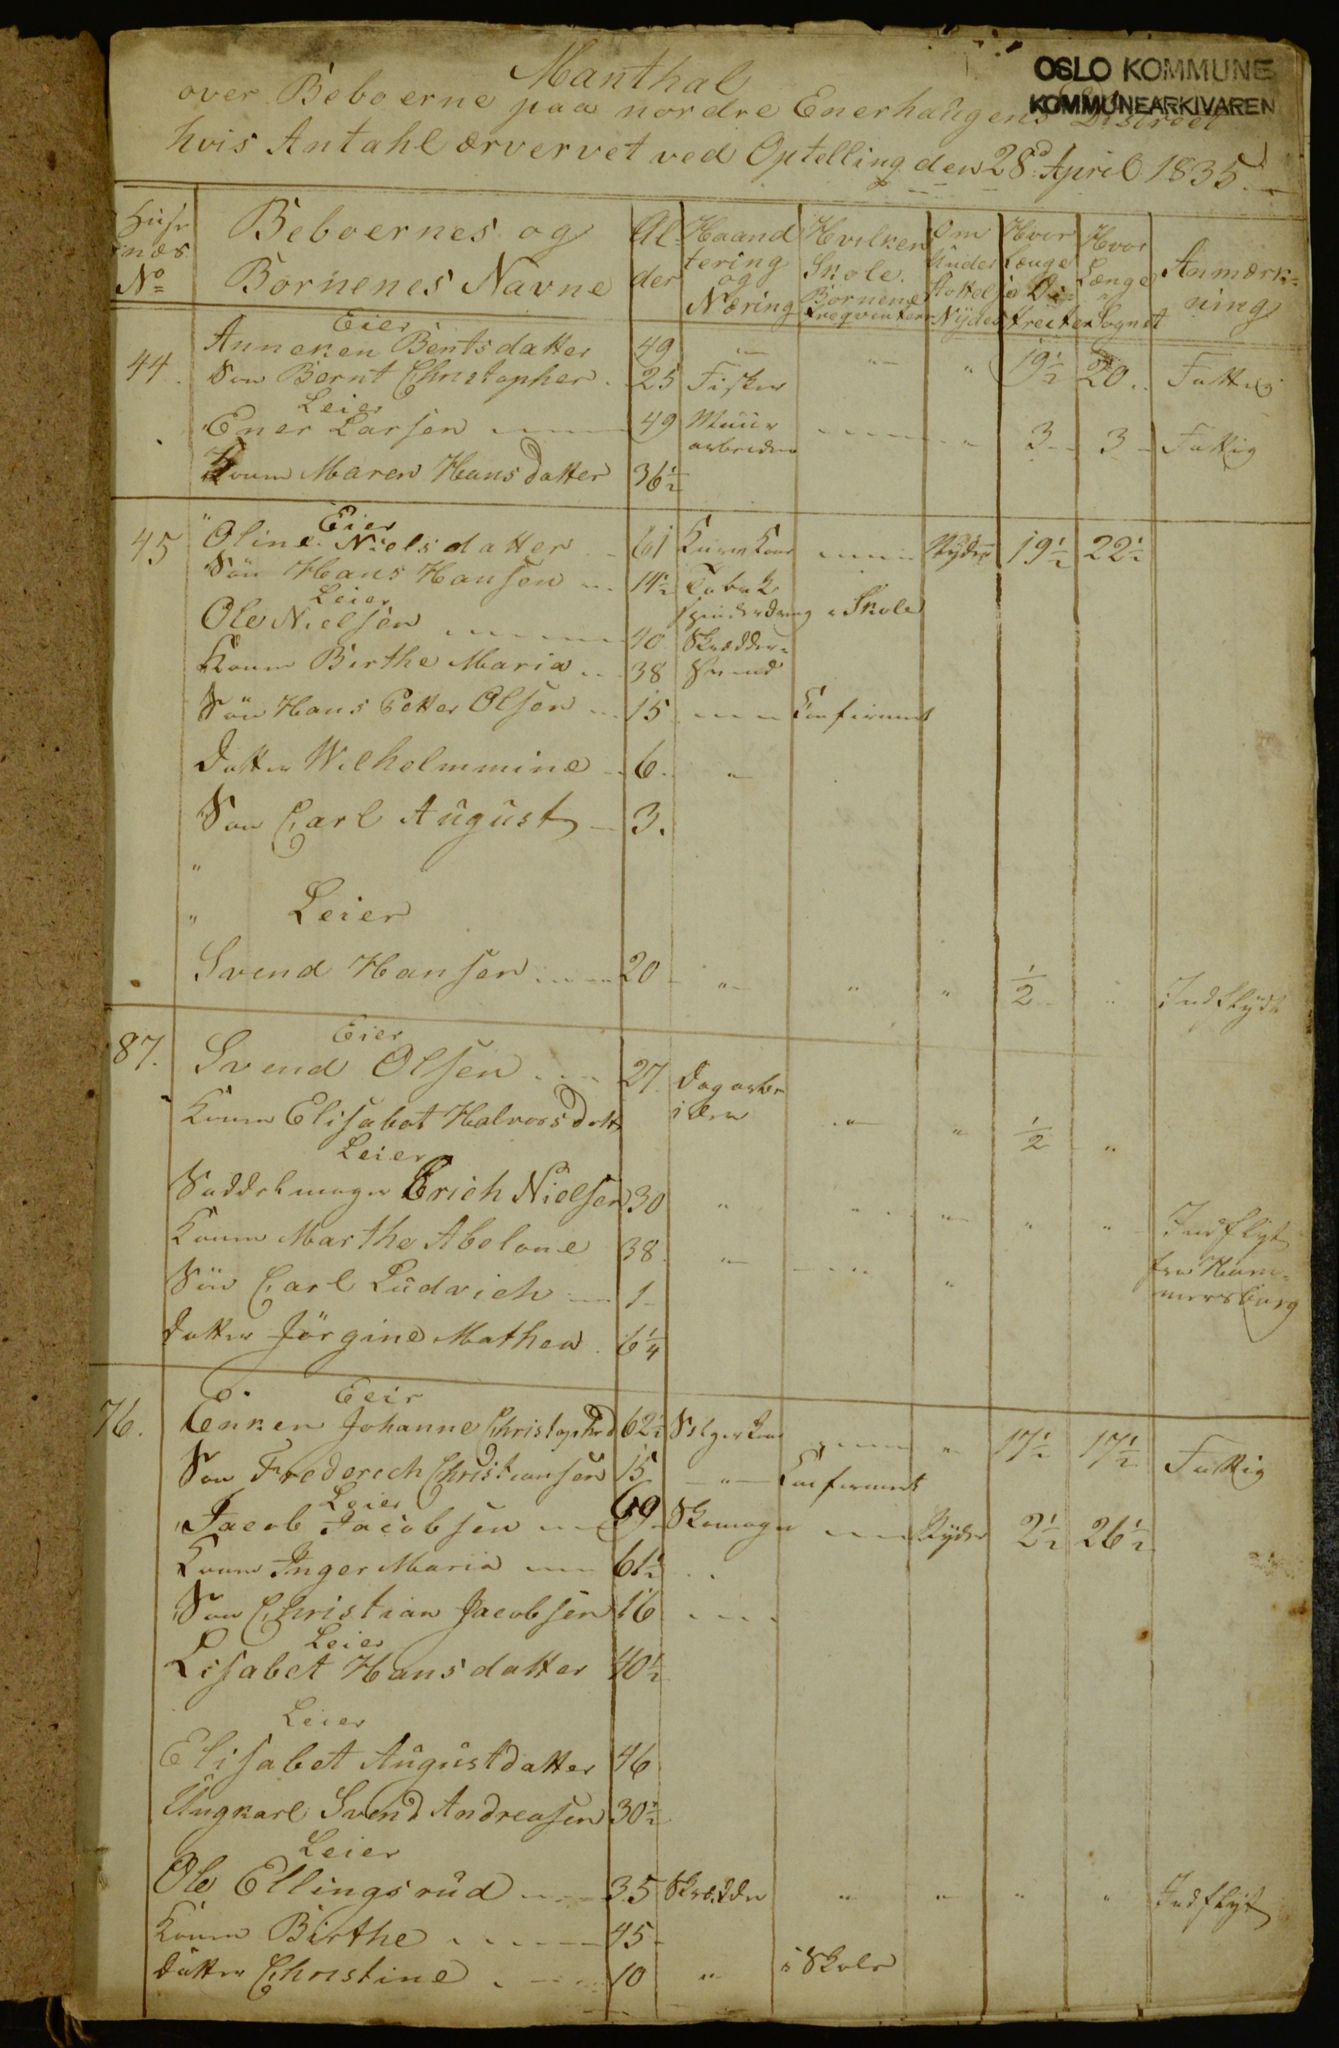 OSLO KOMMUNE
KOMMUNEARKIVAREN
Manthal
over Beboerne paa nordre Enerhaugens District
hvis Antahl ærvervet ved Optelling den 28d April 1835.
No Beboernes og Børnenes Navne Alder Haandtering og Næring Hvilken Skole Børnene freqventere Om Nyder Hvor Længe i Districtet Hvor Længe Sognet Anmærkning
Eier
44. Anneken Bentsdatter 49
Søn Bernt Christopher. 25 Fisker 19½ 20. Fattig
Leier
Ener Larsen 49 Muur arbeider 3 3 Fattig
Konen Maren Hansdatter 36½
Eier
45 Oline Nielsdatter 61 Nyder 19½ 22½
Søn Hans Hansen 14½ Tobak spinderdreng i Skole
Leier
Ole Nielsen 40 Skrædder=
Konen Birthe Maria 38 Svend
Søn Hans Petter Olsen 15 Confirmert
Datter Wilhelmmine 6.
Søn Carl August 3.
Leier
Svend Hansen 20 ½ Indflydt
Eier
87. Svend Olsen 27. Dagarbe
Konen Elisabet Halvorsdatt ider ½
Leier
Saddelmager Erich Nielsen 30 Indflyt
Konen Marthe Abelone 38 fra Ham=
Søn Carl Ludvich 1 mersborg
Datter Jørgine Mathea 6¼
Eeir
76. Enken Johanne Christophd 62½ 17½ 17½ Fattig
Søn Frederich Christiansen 15 Confirmert
Leier
Jacob Jacobsen 69 Skomager Nyder 2½ 26½
Konen Inger Maria 61½
Søn Christian Jacobsen 16
Leier
Lisabet Hansdatter 40½
Leier
Elisabet Augustdatter 46
Ungkarl Svend Andreasen 30½
Leier
Ole Ellingsrud 35 Skrædder Indflyt
Konen Birthe 45
Datter Christine 10 i Skole